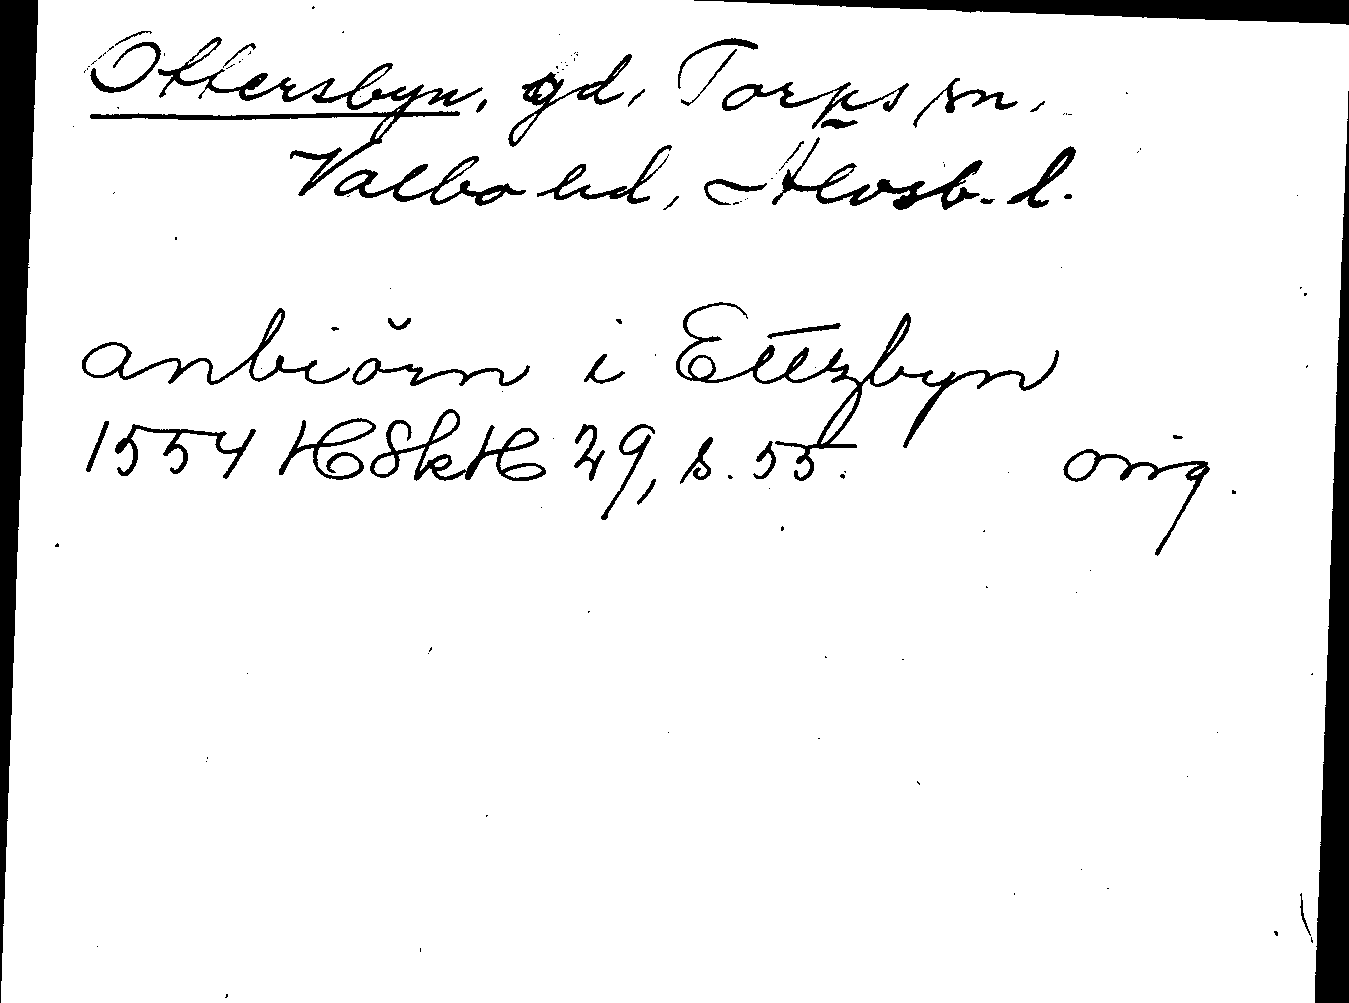 Ottersbyn. gd, Torps sn.
Valbo hd, Älvsb. l.
anbiörn i Ettzbyn
1554 HSkH 29, s. 55. orig.